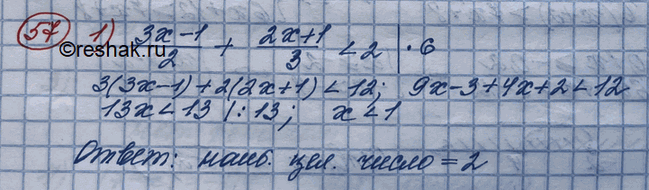 57 1) (3x-1)/2 + (2x+1)/3 < 2 | · 6
©reshak.ru
3(3x-1)+2(2x+1)<12; 9x-3+4x+2<12
13x<13 |:13; x<1
Ответ: наиб. цел. число = 2